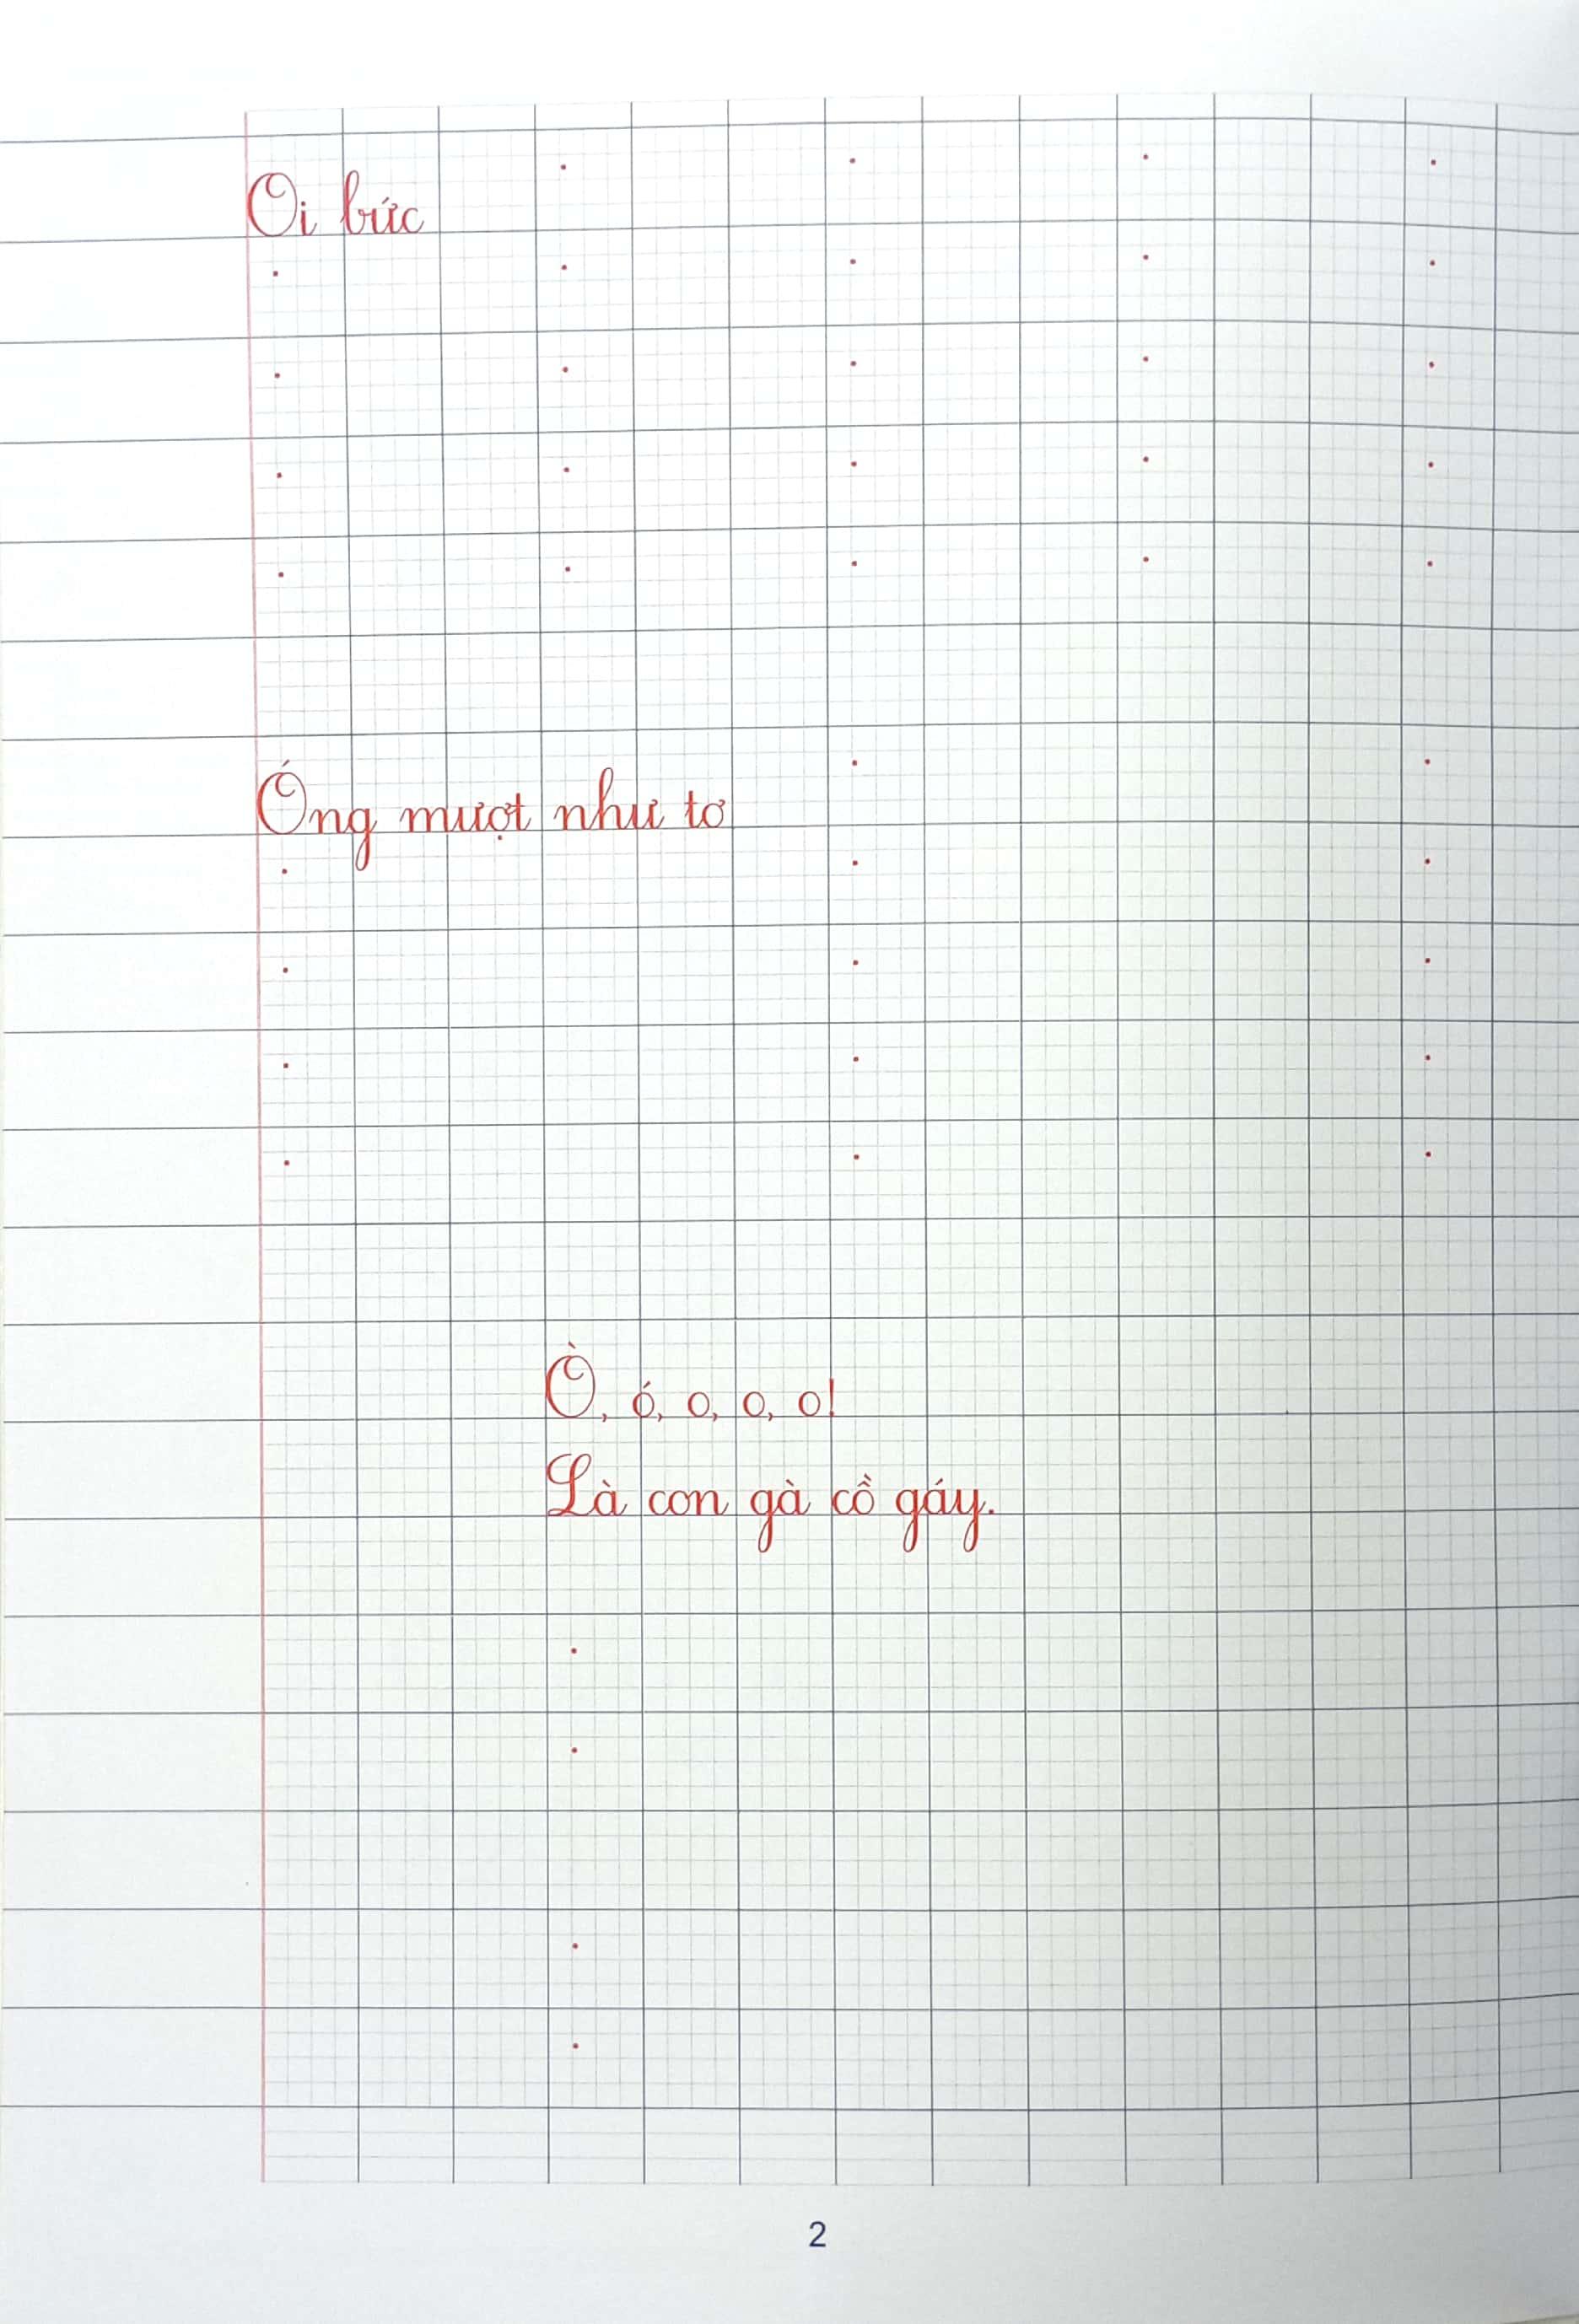 Oi bức
Óng mượt như tơ
Ò, ó, o, o, o!
Là con gà cồ gáy.
2